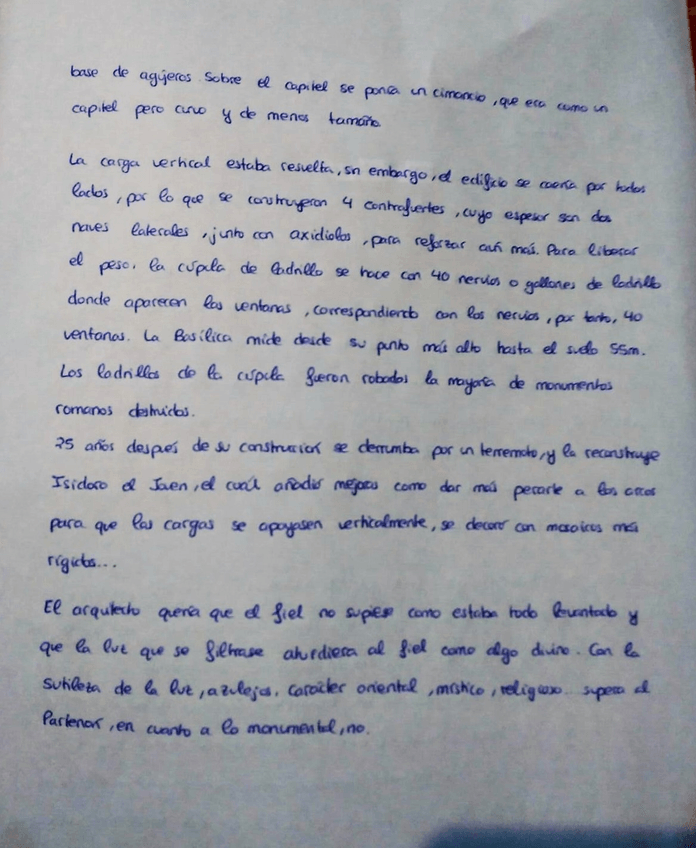 base de agujeros. Sobre el capitel se ponía un cimancio, que era como un
capitel pero curvo y de menos tamaño.
La carga vertical estaba resuelta, sin embargo, el edificio se caería por todos
lados, por lo que se construyeron 4 contrafuertes, cuyo espesor son dos
naves laterales, junto con axidiolos, para reforzar aún más. Para liberar
el peso, la cúpula de ladrillo se hace con 40 nervios o gallones de ladrillo
donde aparecen las ventanas, correspondiendo con los nervios, por tanto, 40
ventanas. La Basílica mide desde su punto más alto hasta el suelo 55m.
Los ladrillos de la cúpula fueron robados la mayoría de monumentos
romanos destruidos.
25 años después de su construcción se derrumba por un terremoto, y la reconstruye
Isidoro el Joven, el cuál añadió mejoras como dar más peralte a los arcos
para que las cargas se apoyasen verticalmente, se decoró con mosaicos más
rígidos...
El arquitecto quería que el fiel no supiese como estaba todo levantado y
que la luz que se filtrase aturdiera al fiel como algo divino. Con la
sutileza de la luz, azulejos, carácter oriental, místico, religioso... supera al
Partenón, en cuanto a lo monumental, no.